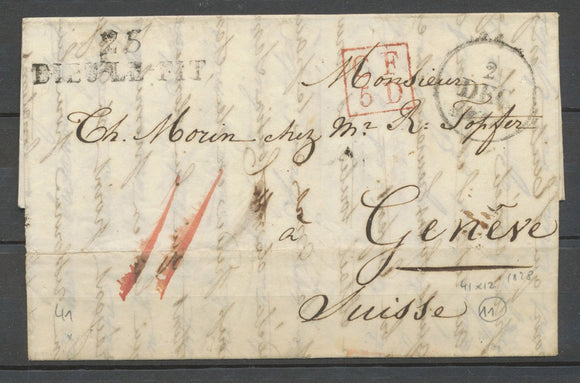 25
DIEULEFIT
F
5 D
2
DEC
Monsieur
Ch. Morin chez Mr. R: Topfer
à Genève
Suisse
41
41 x 12
1828
11